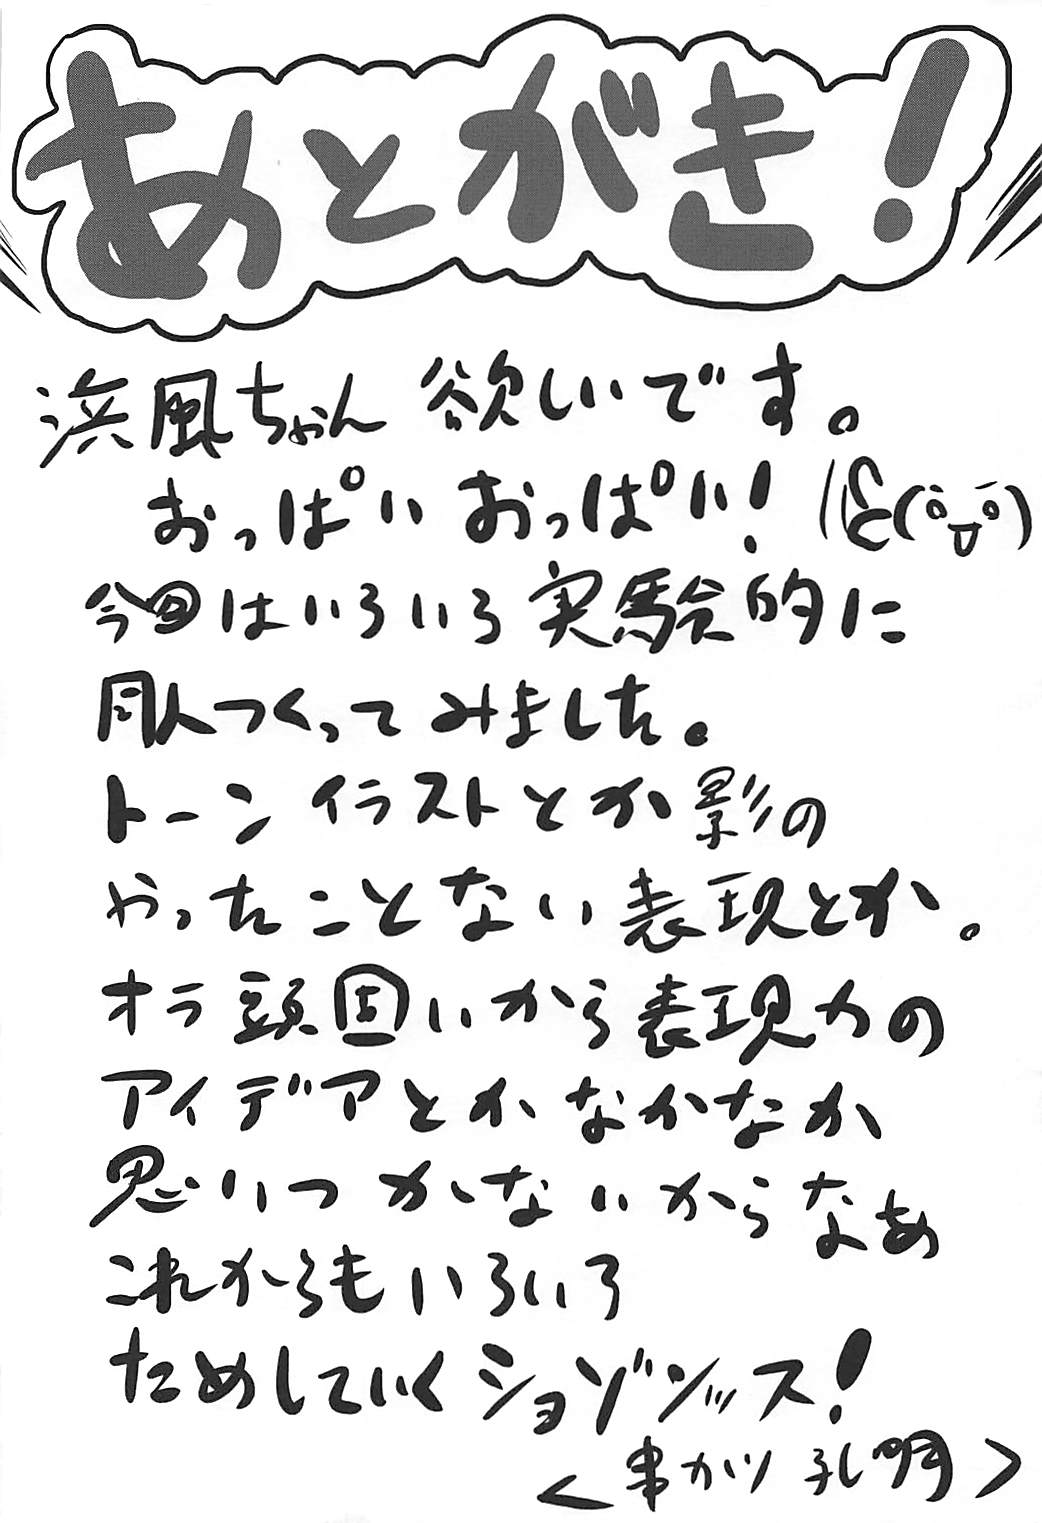 あとがき!
浜風ちゃん欲しいです。
おっぱいおっぱい!
今回はいろいろ実験的に
同人つくってみました。
トーンイラストとか影の
やったことない表現とか。
オラ頭固いから表現力の
アイデアとかなかなか
思いつかないからなあ
これからもいろいろ
ためしていくショゾンッス!
<串カツ孔明>